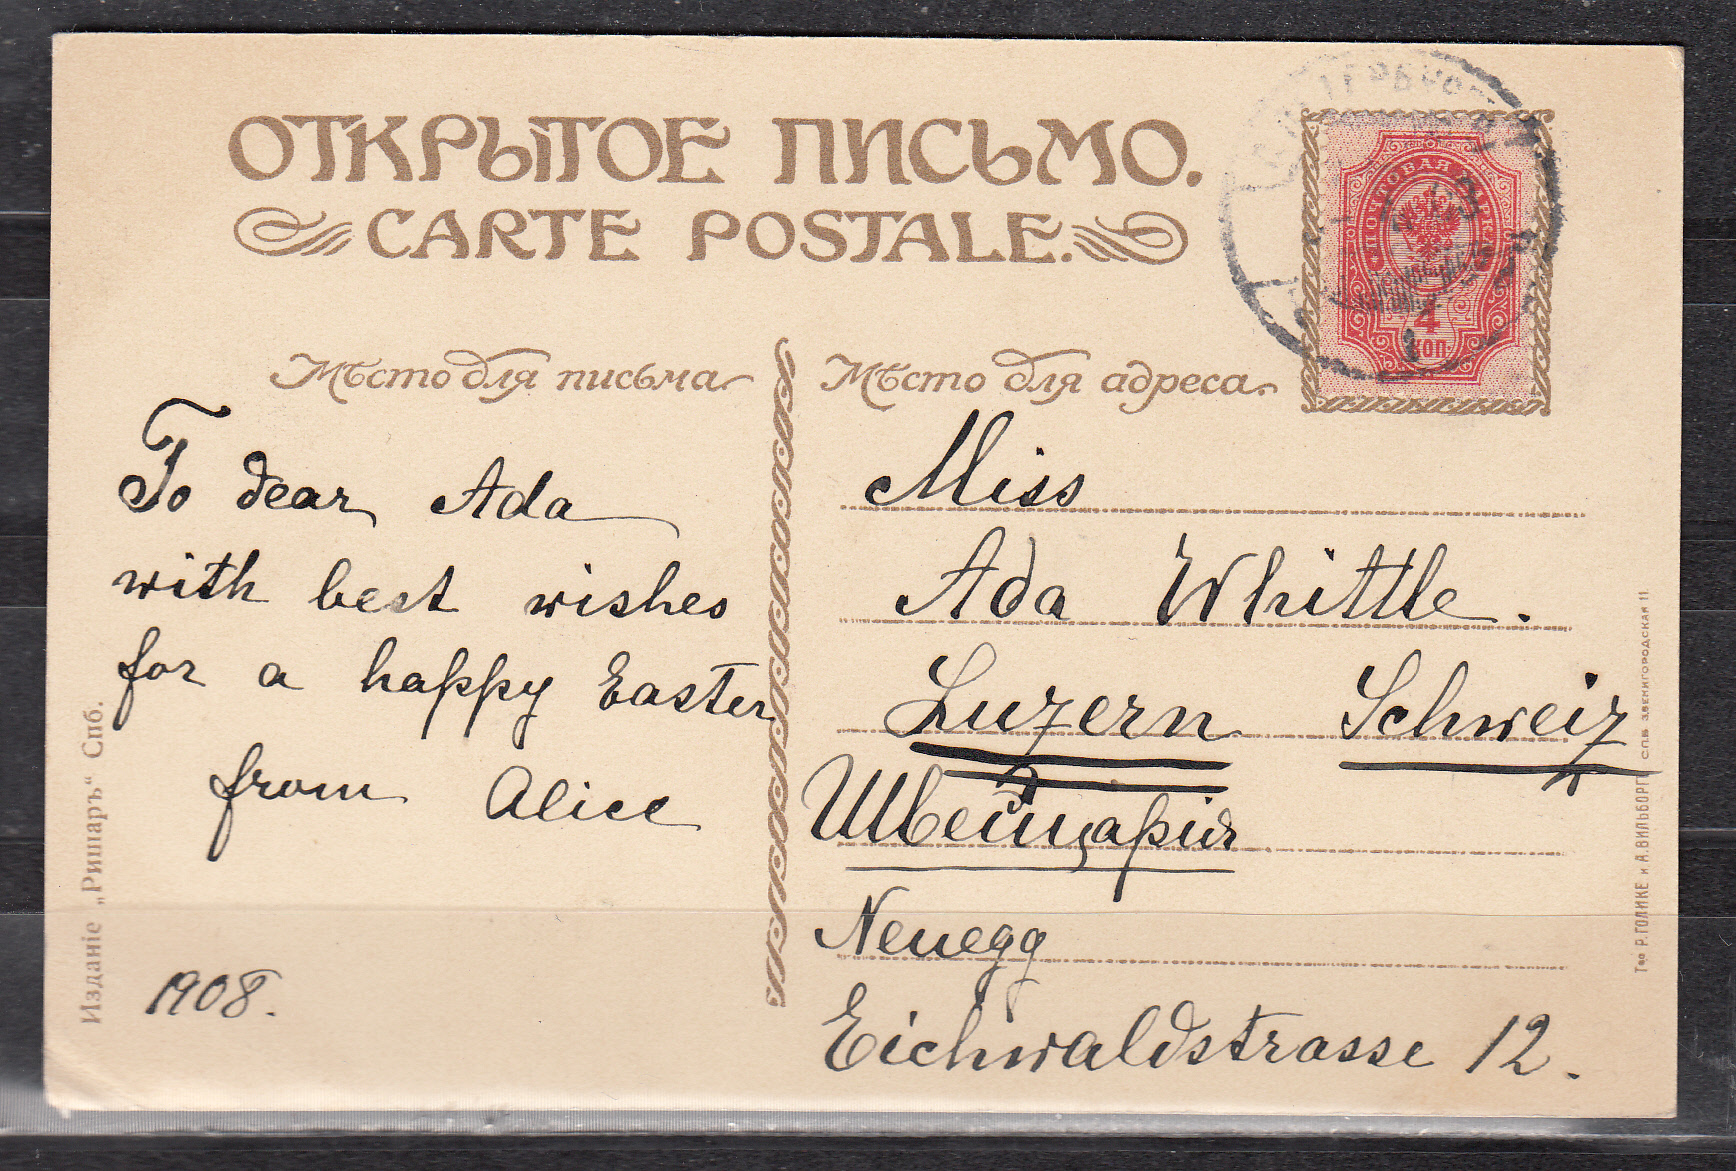 ОТКРЫТОЕ ПИСЬМО.
CARTE POSTALE.
ПОЧТОВАЯ МАРКА
4
КОП.
Мѣсто для письма
Мѣсто для адреса.
To dear Ada
with best wishes
for a happy Easter
from Alice
1908.
Miss
Ada Whittle.
Luzern Schweiz
Швейцарія
Neuegg
Eichwaldstrasse 12.
Изданіе „Ришаръ“ Спб.
Тво Р. ГОЛИКЕ и А. ВИЛЬБОРГ. СПБ. ЗВЕНИГОРОДСКАЯ 11